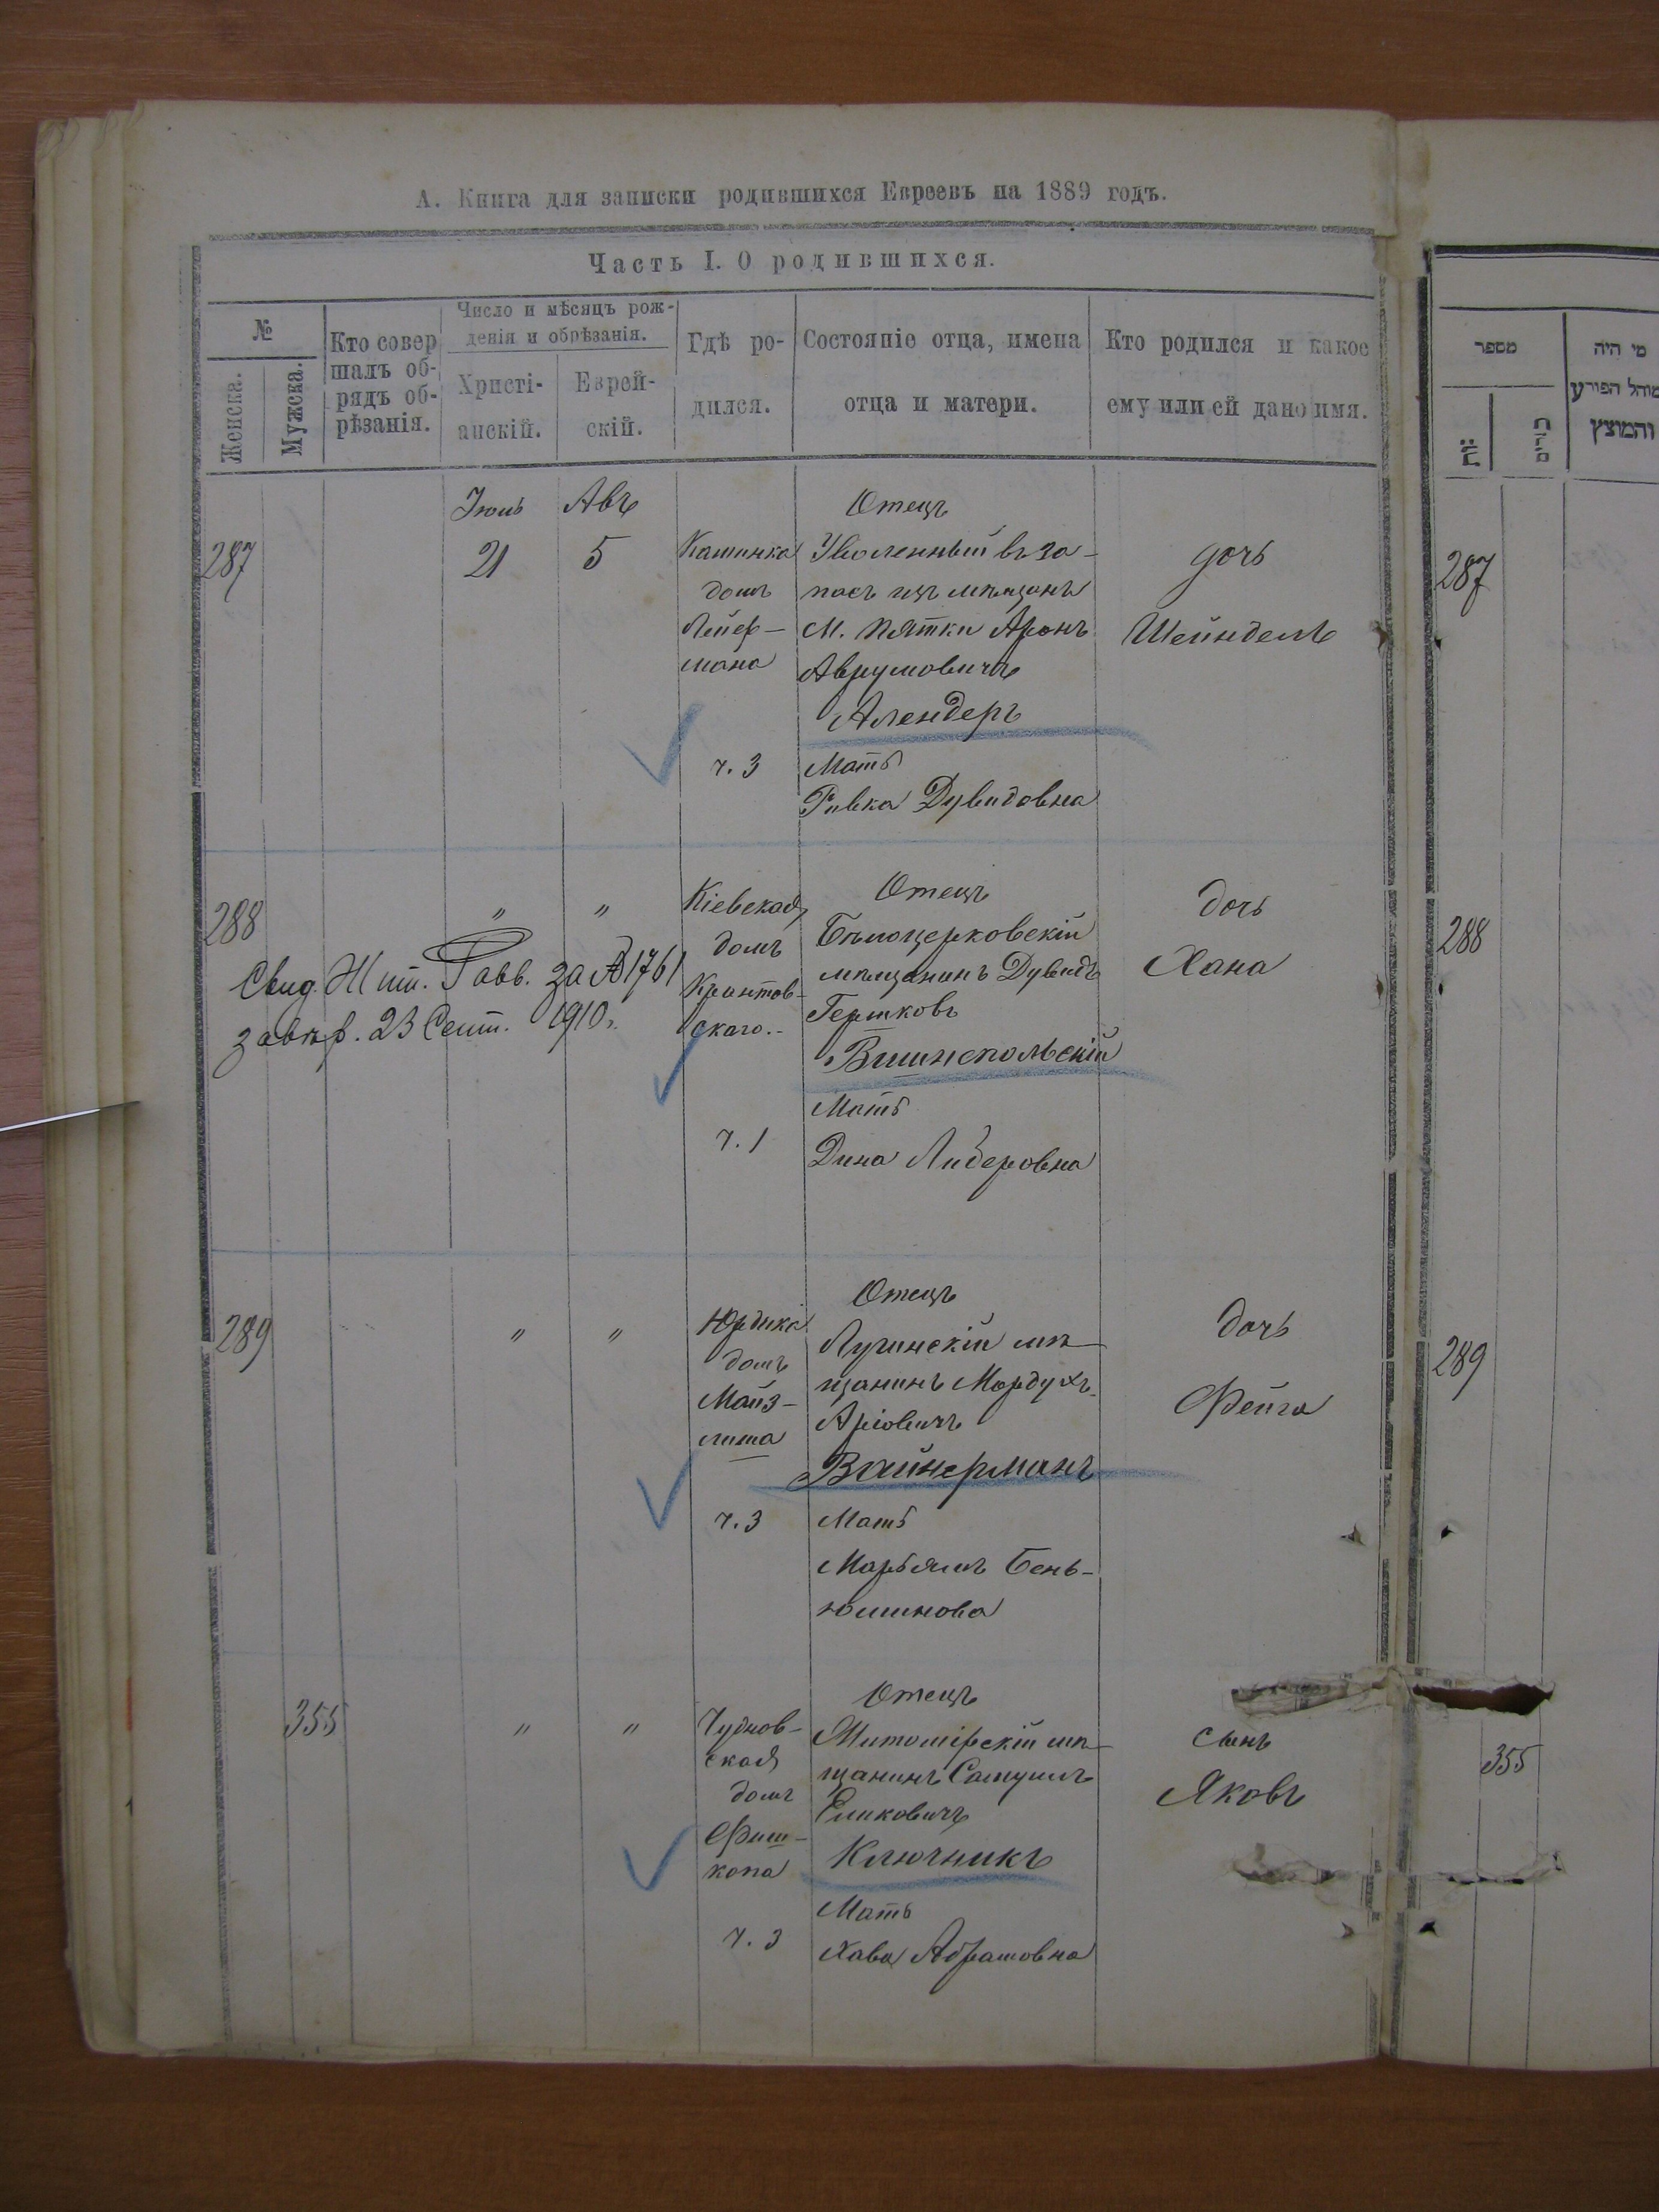 А. Книга для записки родившихся Евреевъ на 1889 годъ.
Часть I. О родившихся.
№
Женска.
Мужска.
Кто совер
шалъ об-
рядъ об-
рѣзанія.
Число и мѣсяцъ рож-
денія и обрѣзанія.
Христі-
анскій.
Еврей-
скій.
Гдѣ ро-
дился.
Состояніе отца, имена
отца и матери.
Кто родился и какое
ему или ей дано имя.
מספר
מי היה
מוהל הפורע
והמוצץ
287
Іюль
21
Авъ
5
Каминка
домъ
Лейер-
мана
ч. 3
Отецъ
Уволенный въ за-
пасъ изъ мѣщанъ
М. Пятки Аронъ
Аврумовичъ
Алендеръ
Мать
Ривка Дувидовна
дочь
Шейндель
287
288
"
"
Свид. Жит. Равв. за № 1761
завѣр. 23 Сент. 1910 г.
Кіевская
домъ
Крантов-
скаго.
ч. 1
Отецъ
Бѣлоцерковскій
мѣщанинъ Дувидъ
Гершковъ
Вишнепольскій
Мать
Дина Лидеровна
дочь
Хана
288
289
"
"
Юрдика
домъ
Майз-
лиша
ч. 3
Отецъ
Лугинскій мѣ-
щанинъ Мордухъ
Аріовичъ
Вайнерманъ
Мать
Марьямъ Бень-
юминова
дочь
Фейга
289
355
"
"
Чуднов-
ская
домъ
Фиш-
копа
ч. 3
Отецъ
Житомірскій мѣ-
щанинъ Самуилъ
Еликовичъ
Ключникъ
Мать
Хава Абрамовна
сынъ
Яковъ
355